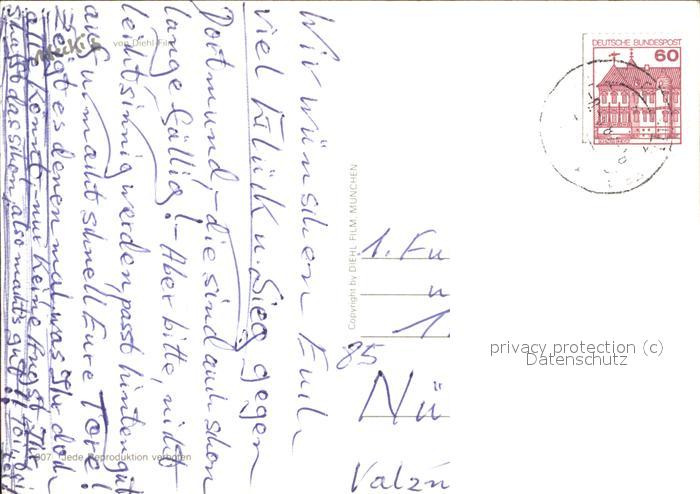 Wir wünschen Euch
viel Glück u. Sieg gegen
Dortmund, - die sind auch schon
lange fällig! - Aber bitte, nicht
leichtsinnig werden, passt hinten gut
auf u. macht schnell Eure Tore!
Zeigt es denen mal, was Ihr doch
alle könnt - nur keine Angst Ihr
schafft das schon, also macht's gut
Mecki
von Diehl Film
807 Jede Reproduktion verboten
Copyright by DIEHL-FILM, MÜNCHEN
DEUTSCHE BUNDESPOST
60
1. Fu
u
1.
85
Nü
Valzn
privacy protection (c)
Datenschutz